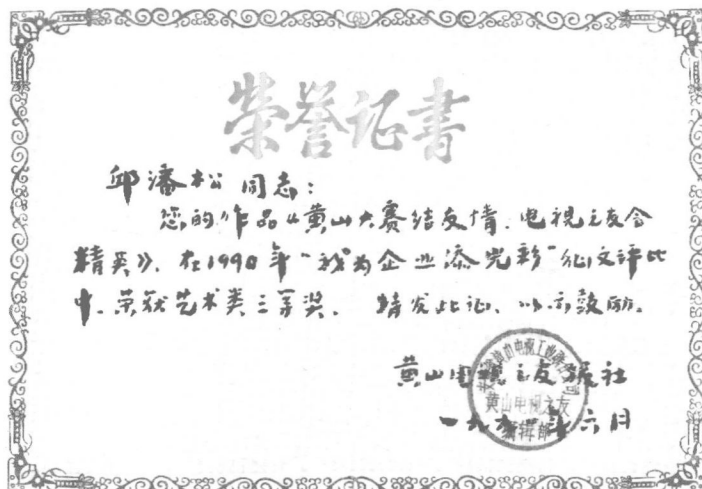 荣誉证书
邱潘松 同志：
您的作品《黄山大赛结友情、电视之友会
精英》，在1990年“我为企业添光彩”征文评比
中，荣获艺术类三等奖。 特发此证，以示鼓励。
黄山电视之友报社
一九九一年六月
黄山电视之友
编辑部